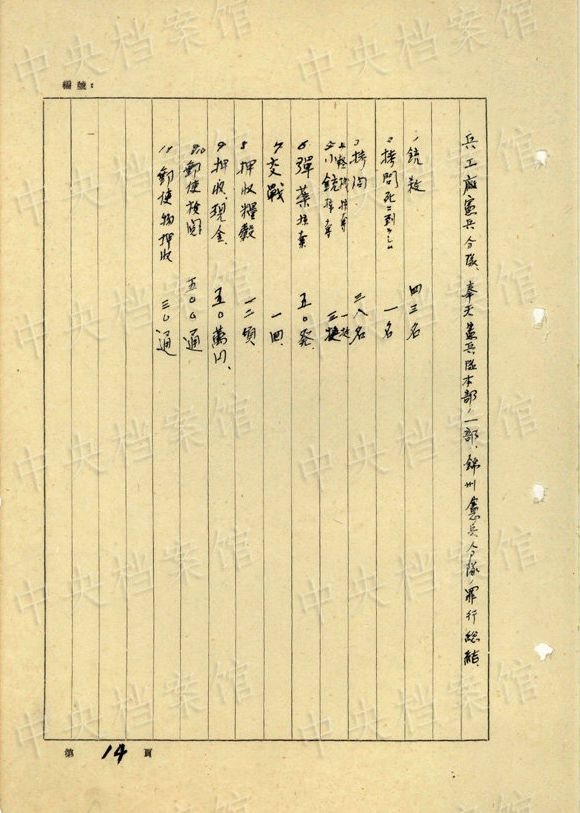 編號：
兵工廠憲兵分隊、奉天憲兵隊本部ノ一部、錦州憲兵分隊ノ罪行総結、
1 銃殺 四三名
2 拷問死ニ到ラシ 一名
3 拷問 三八名
4 軽機掠奪 一挺
5 小銃掠奪 三挺
6 弾薬掠奪 五〇発
7 交戦 一回
8 押收糧穀 一二頓
9 押収、現金、 五〇萬円、
10 郵便検閲 五〇〇通
11 郵便物押收 三〇通
第 14 頁
中央档案馆